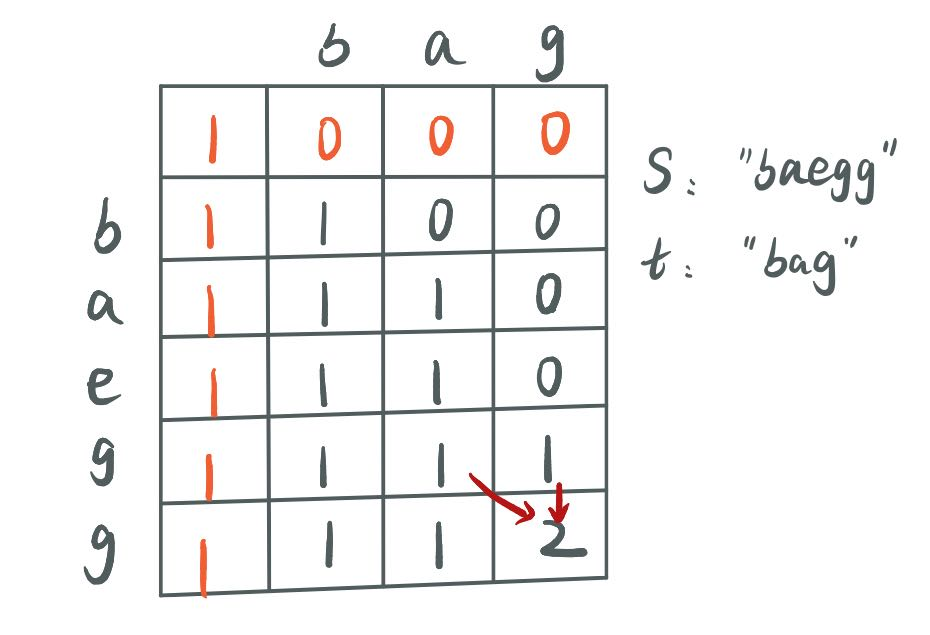 b a g
1 0 0 0
b 1 1 0 0
a 1 1 1 0
e 1 1 1 0
g 1 1 1 1
g 1 1 1 2
S: "baegg"
t: "bag"